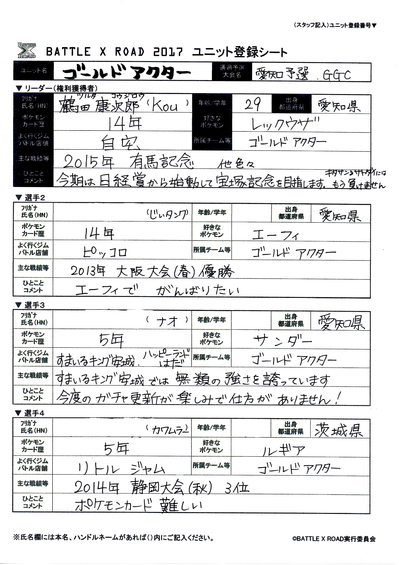 (スタッフ記入)ユニット登録番号▼
BATTLE X ROAD 2017 ユニット登録シート
ユニット名 ゴールドアクター 通過予選大会名 愛知予選 GGC
▼リーダー(権利獲得者)
フリガナ 氏名(HN) ツルタ コウジロウ 鶴田康次郎(Kou) 年齢/学年 29 出身都道府県 愛知県
ポケモンカード歴 14年 好きなポケモン レックウザ
よく行くジムバトル店舗 自宅 所属チーム等 ゴールドアクター
主な戦績等 2015年 有馬記念 他色々
キタサンよサトダイヤにはもう負けません
ひとことコメント 今期は日経賞から始動して宝塚記念を目指します。
▼選手2
フリガナ 氏名(HN) (じぃタング) 年齢/学年 出身都道府県 愛知県
ポケモンカード歴 14年 好きなポケモン エーフィ
よく行くジムバトル店舗 ピッコロ 所属チーム等 ゴールドアクター
主な戦績等 2013年 大阪大会(春)優勝
ひとことコメント エーフィで がんばりたい
▼選手3
フリガナ 氏名(HN) (ナオ) 年齢/学年 出身都道府県 愛知県
ポケモンカード歴 5年 好きなポケモン サンダー
よく行くジムバトル店舗 すまいるキング安城、ハッピーランドはだ 所属チーム等 ゴールドアクター
主な戦績等 すまいるキング安城では無類の強さを誇っています
ひとことコメント 今度のガチャ更新が楽しみで仕方がありません!
▼選手4
フリガナ 氏名(HN) (カワムラ) 年齢/学年 出身都道府県 茨城県
ポケモンカード歴 5年 好きなポケモン ルギア
よく行くジムバトル店舗 リトルジャム 所属チーム等 ゴールドアクター
主な戦績等 2014年 静岡大会(秋) 3位
ひとことコメント ポケモンカード難しい
※氏名欄には本名、ハンドルネームがあれば()内にご記入ください。 ©BATTLE X ROAD実行委員会